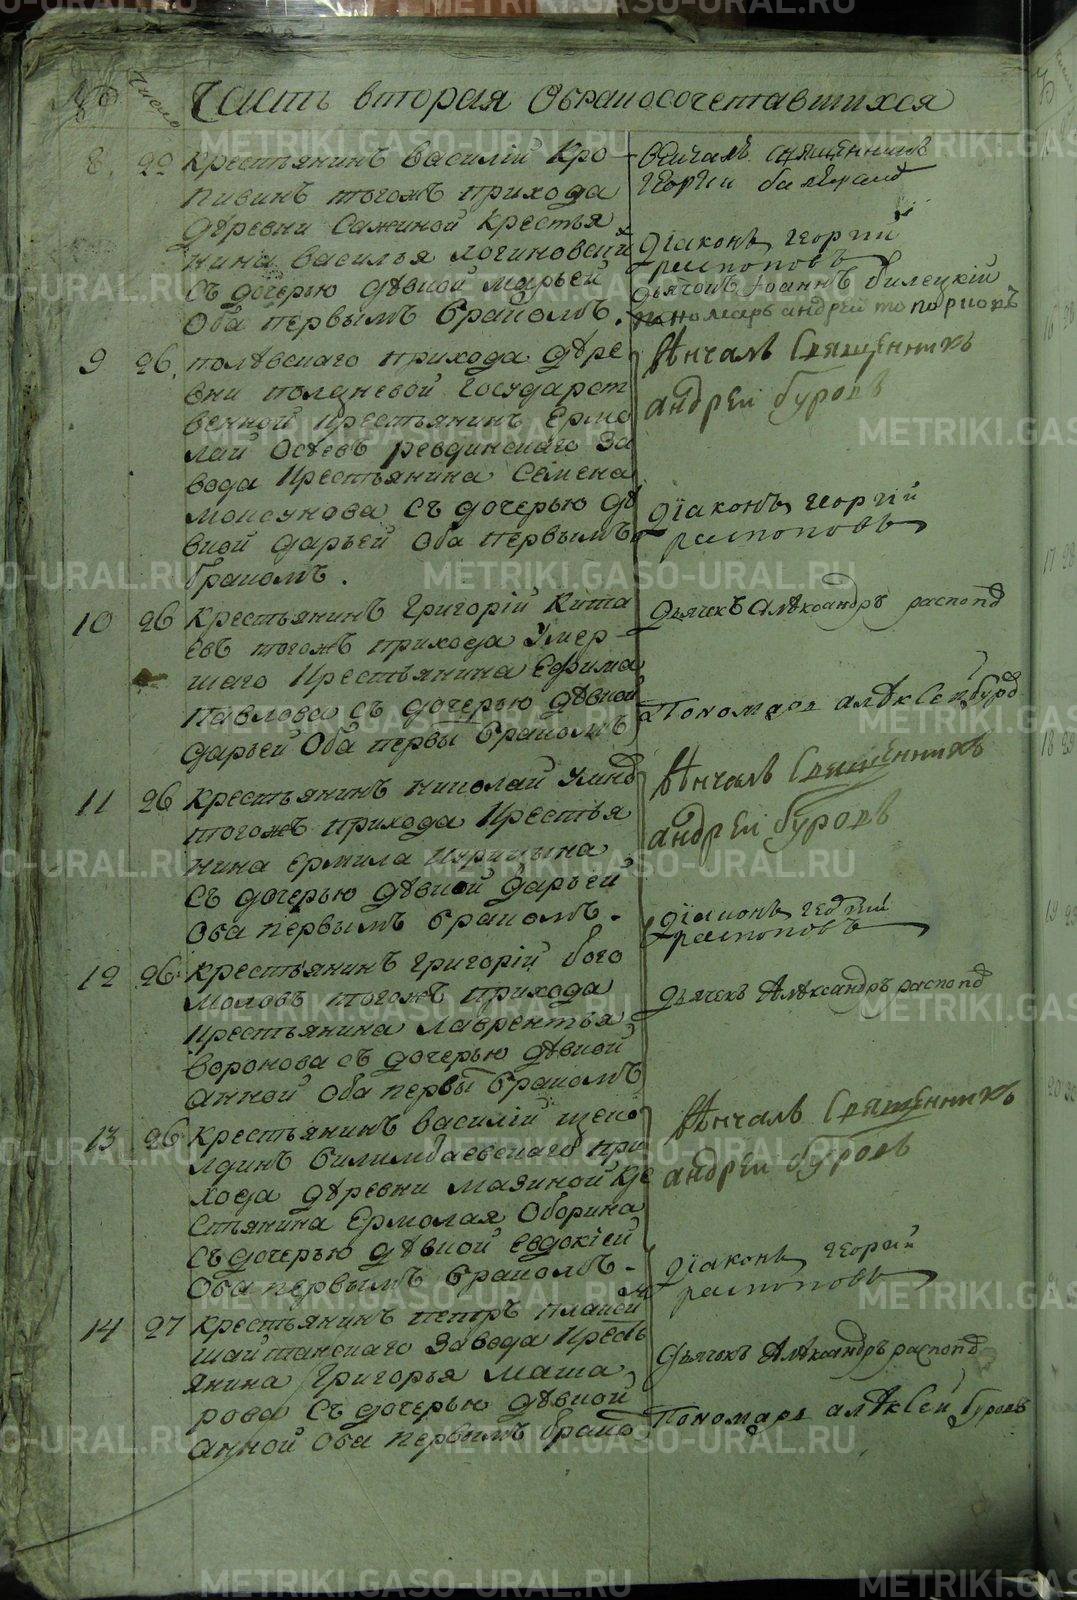 № Число Часть вторая о бракосочетавшихся
8. 22 крестьянинъ василій Кро
пивинъ тогожъ прихода
дѣревни Сажиной Крестья
нина василья логиновай
съ дочерью дѣвкой марьей
Оба первымъ бракомъ.
вѣнчалъ священникъ
георгии
діаконъ георгий
распоповъ
дьячокъ Іоаннъ билецкій
пономарь андрей топорковъ
9 26. полѣвскаго прихода дѣре
вни полдневой государст
венной крестьянинъ Ермо
лай ревдинскаго За
вода Крестьянина Семена
мокѣунова съ дочерью дѣ
вкой дарьей Оба первымъ
бракомъ.
вѣнчалъ Священникъ
андреи буровъ
діаконъ георгій
распоповъ
10 26 крестьянинъ григорій Кита
евъ тогожъ прихода Умер-
шаго Крестьянина Ефима
Павлова съ дочерью дѣвкой
дарьей Оба первы бракомъ
дьячекъ Алѣксандръ распопо
Пономарь алѣксей буро
11 26 крестьянинъ николай
тогожъ прихода Крестья
нина ермила
съ дочерью дѣвкой дарьей
Оба первымъ бракомъ.
вѣнчалъ Священникъ
андреи буровъ
діаконъ георгій
распоповъ
12 26. крестьянинъ григорій бого
моловъ тогожъ прихода
Крестьянина лаврентья
воронова съ дочерью дѣвкой
анной оба первы бракомъ
дьячекъ Алѣксандръ распопо
13 26 крестьянинъ василій щеко
лдинъ билимбаевскаго при
хода дѣревни мазиной кре
стянина Ермолая Оборина
съ дочерью дѣвкой евдокіей
Оба первымъ бракомъ.
вѣнчалъ Священникъ
андреи буровъ
діаконъ георгій
распоповъ
14 27 крестьянинъ петръ плакси
шайтанскаго Завода Кресть
янина Григорья маша
рова съ дочерью дѣвкой
анной оба первымъ брако
дьячокъ Алѣксандръ распопо
Пономарь алѣксей буровъ
METRIKI.GASO-URAL.RU